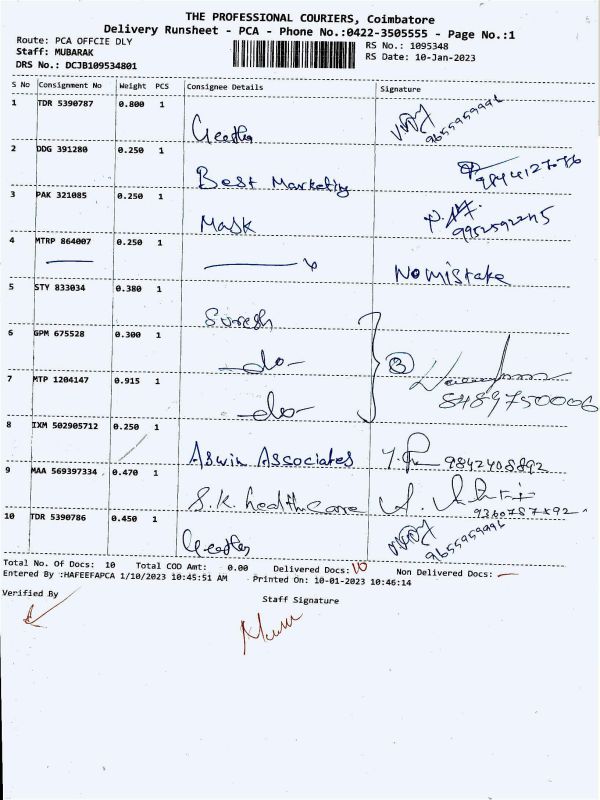 THE PROFESSIONAL COURIERS, Coimbatore
Delivery Runsheet - PCA - Phone No.:0422-3505555 - Page No.:1
Route: PCA OFFCIE DLY
RS No.: 1095348
Staff: MUBARAK
RS Date: 10-Jan-2023
DRS No.: DCJB109534801
S No Consignment No Weight PCS Consignee Details Signature
1 TDR 5390787 0.800 1
Geetha 9655959996
2 DDG 391280 0.250 1
Best Marketing
3 PAK 321085 0.250 1
Mask
4 MTRP 864007 0.250 1
No mistake
5 STY 833034 0.380 1
Suresh
6 GPM 675528 0.300 1
-do- 3
7 MTP 1204147 0.915 1
-do- 8489750006
8 IXM 502905712 0.250 1
Aswin Associates 9842408892
9 MAA 569397334 0.470 1
S.K. healthcare
10 TDR 5390786 0.450 1
Geetha 9655959996
Total No. Of Docs: 10 Total COD Amt: 0.00 Delivered Docs: 10 Non Delivered Docs: —
Entered By :HAFEEFAPCA 1/10/2023 10:45:51 AM Printed On: 10-01-2023 10:46:14
Verified By
Staff Signature